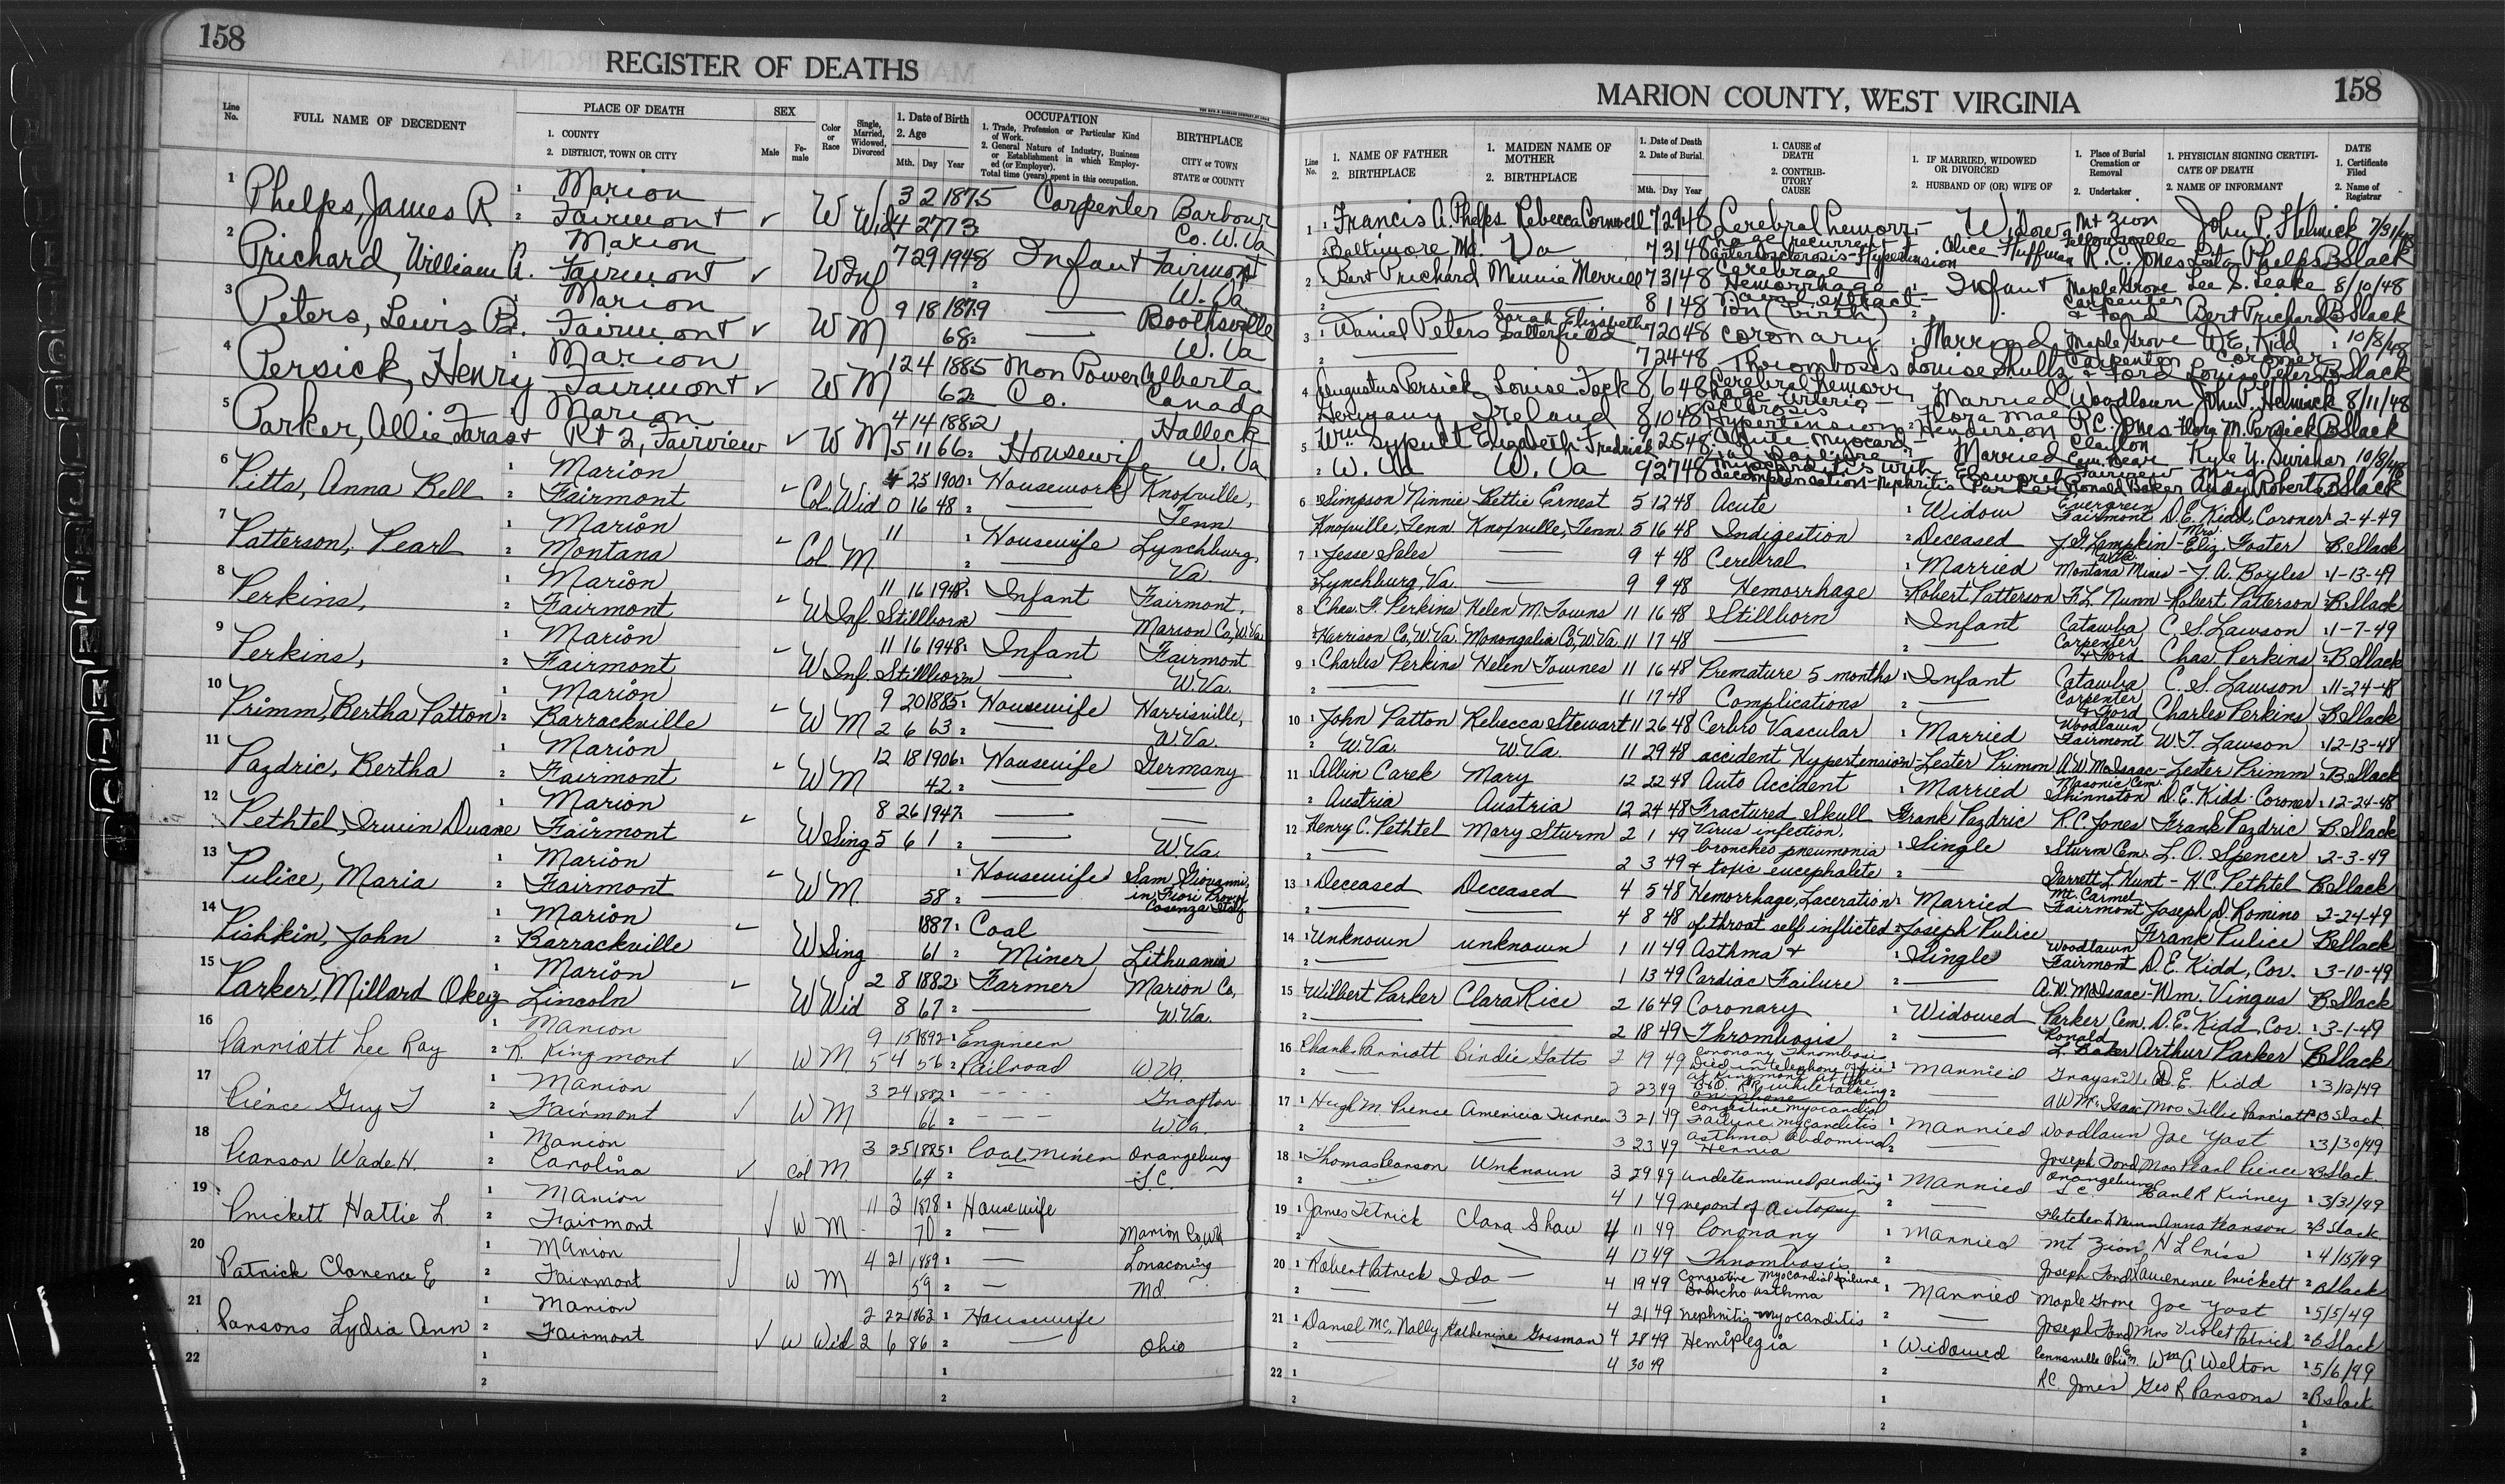 158
REGISTER OF DEATHS
Line No.
FULL NAME OF DECEDENT
PLACE OF DEATH
1. COUNTY
2. DISTRICT, TOWN OR CITY
SEX
Male
Female
Color or Race
Single, Married, Widowed, Divorced
1. Date of Birth
2. Age
Mth. Day Year
OCCUPATION
1. Trade, Profession or Particular Kind of Work.
2. General Nature of Industry, Business or Establishment in which Employed (or Employer).
Total time (years) spent in this occupation.
BIRTHPLACE
CITY or TOWN
STATE or COUNTY
1 Phelps, James R 1 Marion 3 2 1875 Carpenter Barbour
2 Fairmont ✓ W Wid 4 27 73 Co. W. Va
2 Prichard, William A. Marion 7 29 1948 Infant Fairmont
Fairmont ✓ W Inf 2 W. Va
3 Peters, Lewis B. 1 Marion 9 18 1879 — Boothsville
Fairmont ✓ W M 68 W. Va
4 Persick, Henry 1 Marion 12 4 1885 Mon Power Alberta
Fairmont ✓ W M 62 Co. Canada
5 Parker, Allie Marion 4 14 1882 Halleck
Rt 2, Fairview ✓ W M 5 11 66 Housewife W. Va
6 Pitts, Anna Bell 1 Marion 4 25 1900 Housework Knoxville,
2 Fairmont Col. Wid 0 16 48 2 — Tenn
7 Patterson, Pearl 1 Marion 11 1 Housewife Lynchburg,
2 Montana Col. M 2 — Va.
8 Perkins, 1 Marion 11 16 1948 Infant Fairmont,
2 Fairmont W Inf. Stillborn — Marion Co, W. Va.
9 Perkins, 1 Marion 11 16 1948 Infant Fairmont
2 Fairmont W Inf. Stillborn — W. Va.
10 Primm, Bertha Patton 1 Marion 9 20 1885 Housewife Harrisville,
2 Barrackville W M 2 6 63 2 — W. Va.
11 Pazdric, Bertha 1 Marion 12 18 1906 Housewife Germany
2 Fairmont W M 42 2 — —
12 Pethtel, Irwin Duane 1 Marion 8 26 1947 — —
Fairmont W Sing 5 6 1 2 — W. Va.
13 Pulice, Maria 1 Marion 1 Housewife Sam Giovanni
2 Fairmont W M. 58 2 — in Fiori Prov of Cosenza Italy
14 Pishkin, John 1 Marion 1887 1 Coal —
2 Barrackville W Sing 61 2 Miner Lithuania
15 Parker, Millard Okey 1 Marion 2 8 1882 Farmer Marion Co,
2 Lincoln W Wid 8 67 2 — W. Va.
16 Parriott Lee Ray 1 Marion 9 15 1892 1 Engineer
2 R. Kingmont ✓ W M 5 4 56 2 Railroad W Va.
17 Pierce Guy T 1 Marion 3 24 1882 1 - - - Grafton
2 Fairmont ✓ W M 66 2 - - - W. Va.
18 Pearson Wade H. 1 Marion 3 25 1885 1 Coal Miner Orangeburg
2 Carolina ✓ Col M 64 2 — S. C.
19 Prickett Hattie L 1 Marion 11 3 1878 1 Housewife
2 Fairmont ✓ W M 70 2 — Marion Co, WV
20 Patrick Clarence E 1 Marion 4 21 1889 1 — Lonaconing
2 Fairmont ✓ W M 59 2 — Md.
21 Parsons Lydia Ann 1 Marion 2 22 1863 1 Housewife
2 Fairmont ✓ W Wid 2 6 86 2 — Ohio
22 1 1
2 2
158
MARION COUNTY, WEST VIRGINIA
Line No.
1. NAME OF FATHER
2. BIRTHPLACE
1. MAIDEN NAME OF MOTHER
2. BIRTHPLACE
1. Date of Death
2. Date of Burial.
Mth. Day Year
1. CAUSE of DEATH
2. CONTRIBUTORY CAUSE
1. IF MARRIED, WIDOWED OR DIVORCED
2. HUSBAND OF (OR) WIFE OF
1. Place of Burial Cremation or Removal
2. Undertaker
1. PHYSICIAN SIGNING CERTIFICATE OF DEATH
2. NAME OF INFORMANT
DATE
1. Certificate Filed
2. Name of Registrar
1 1 Francis A. Phelps Rebecca Cornwell 7 29 48 Cerebral hemorr- Widow Mt Zion John P. Helmick 7/31/48
Baltimore, Md. Va 7 31 48 hage recurrent arteriosclerosis-Hypertension Alice Huffman R. C. Jones Phelps B Slack
2 Bert Prichard Minnie Merrill 7 31 48 Cerebral Hemorrhage 1 Infant Maple Grove Lee S. Leake 8/10/48
2 — — 8 1 48 (birth) Carpenter & Ford Bert Prichard B Slack
3 Daniel Peters Sarah Elizabeth Satterfield 7 20 48 Coronary 1 Married Maple Grove D. E. Kidd Coroner 1 10/8/48
2 — 7 24 48 Thrombosis Louise Shultz Carpenter & Ford Louise Peters B Slack
4 Augustus Persick Louise Jock 8 6 48 Cerebral hemorrhage Arterio- Married Woodlawn John P. Helmick 8/11/48
Germany Ireland 8 10 48 sclerosis Hypertension Flora Mae Henderson R.C. Jones Flora M. Persick B Slack
5 Wm Sypult Elizabeth Fredrick 9 25 48 acute myocardial failure Married Clayton Cem. Near Fairview Kyle Y. Swisher 10/8/48
2 W. Va W. Va 9 27 48 Myocarditis with decompensation-nephritis Elsworth Parker Ronald Baker Mrs Andy Roberts B Slack
6 1 Simpson Ninnie Bettie Ernest 5 12 48 Acute 1 Widow Evergreen Fairmont D. E. Kidd, Coroner 2-4-49
Knoxville, Tenn Knoxville, Tenn 5 16 48 Indigestion 2 Deceased J. I. Lampkin - Mrs. Eliz. Foster B. Slack
7 1 Jesse Sales — 9 4 48 Cerebral 1 Married Montana Mines W.Va. - J. A. Boyles 1-13-49
2 Lynchburg, Va. — 9 9 48 Hemorrhage Robert Patterson F. L. Nunn - Robert Patterson B Slack
8 1 Chas. F. Perkins Helen M. Towns 11 16 48 Stillborn 1 Infant Catawba C. S. Lawson 1-7-49
2 Harrison Co, W. Va. Monongalia Co, W. Va 11 17 48 — 2 — Carpenter & Ford Chas. Perkins B Slack
9 1 Charles Perkins Helen Townes 11 16 48 Premature 5 months 1 Infant Catawba C. S. Lawson 11-24-48
2 — — 11 17 48 Complications 2 — Carpenter & Ford Charles Perkins B Slack
10 1 John Patton Rebecca Stewart 11 26 48 Cerbro Vascular 1 Married Woodlawn Fairmont W. T. Lawson 12-13-48
2 W. Va. W. Va. 11 29 48 accident Hypertension - Lester Primon A. W. McIsaac - Lester Primm B Slack
11 1 Albin Carek Mary 12 22 48 Auto Accident 1 Married Masonic Cem. Shinnston D. E. Kidd - Coroner 12-24-48
2 Austria Austria 12 24 48 Fractured Skull Frank Pazdric R. C. Jones Frank Pazdric B. Slack
12 Henry C. Pethtel Mary Sturm 2 1 49 Virus infection, bronches pneumonia 1 Single Sturm Cem. L. O. Spencer 2-3-49
2 — — 2 3 49 & toxic encephalete 2 — Garrett L Hunt - H.C. Pethtel B Slack
13 1 Deceased Deceased 4 5 48 Hemorrhage, Laceration 1 Married Mt. Carmel Fairmont Joseph D. Romino 2-24-49
2 — — 4 8 48 of throat self inflicted 2 Joseph Pulice Frank Pulice B Slack
14 1 Unknown unknown 1 11 49 Asthma & 1 Single Woodlawn Fairmont D. E. Kidd, Cor. 1 3-10-49
2 — — 1 13 49 Cardiac Failure 2 — A. W. McIsaac - Wm. Vingus B Slack
15 1 Wilbert Parker Clara Rice 2 16 49 Coronary 1 Widowed Parker Cem. D. E. Kidd, Cor. 1 3-1-49
2 — — 2 18 49 Thrombosis 2 — Ronald L. Baker Arthur Parker B Slack
16 1 Parriott Birdie Gatts 2 19 49 Coronary Thrombosis Died in telephone office at Kingmont at the 1 Married Graysville D. E. Kidd 1 3/12/49
2 — 2 23 49 B&O. RR while talking on phone 2 — A W McIsaac Mrs Tillie Parriott 2 B Slack
17 1 Hugh M Pierce Americia Turner 3 21 49 Congestive myocardial Failure myocarditis 1 Married Woodlawn Joe Yost 1 3/30/49
2 — — 3 23 49 asthma abdominal Hernia 2 Joseph Ford Mrs Pearl Pierce 2 B Slack
18 1 Thomas Pearson Unknown 3 29 49 undetermined pending 1 Married Orangeburg S. C. Earl R Kinney 1 3/31/49
2 — 4 1 49 report of Autopsy 2 — Fletcher L Nunn Anna Pearson 2 B Slack
19 1 James Tetrick Clara Shaw 4 11 49 Coronary 1 Married Mt Zion H L Criss 1 4/15/49
2 — — 4 13 49 Thrombosis 2 — Joseph Ford Lawerence Prickett 2 B Slack
20 1 Robert Patrick Ida — 4 19 49 Congestive Myocardial Failure Broncho asthma 1 Married Maple Grove Joe Yost 1 5/5/49
2 — — 4 21 49 nephritis - myocarditis 2 — Joseph Ford Mrs Violet Patrick 2 B Slack
21 1 Daniel Mc. Nally Katherine Gossman 4 28 49 Hemiplegia 1 Widowed Ohio Wm A Welton 1 5/6/49
2 — 4 30 49 2 R C Jones Geo R Parsons 2 B Slack
22 1 1 1
2 2 2